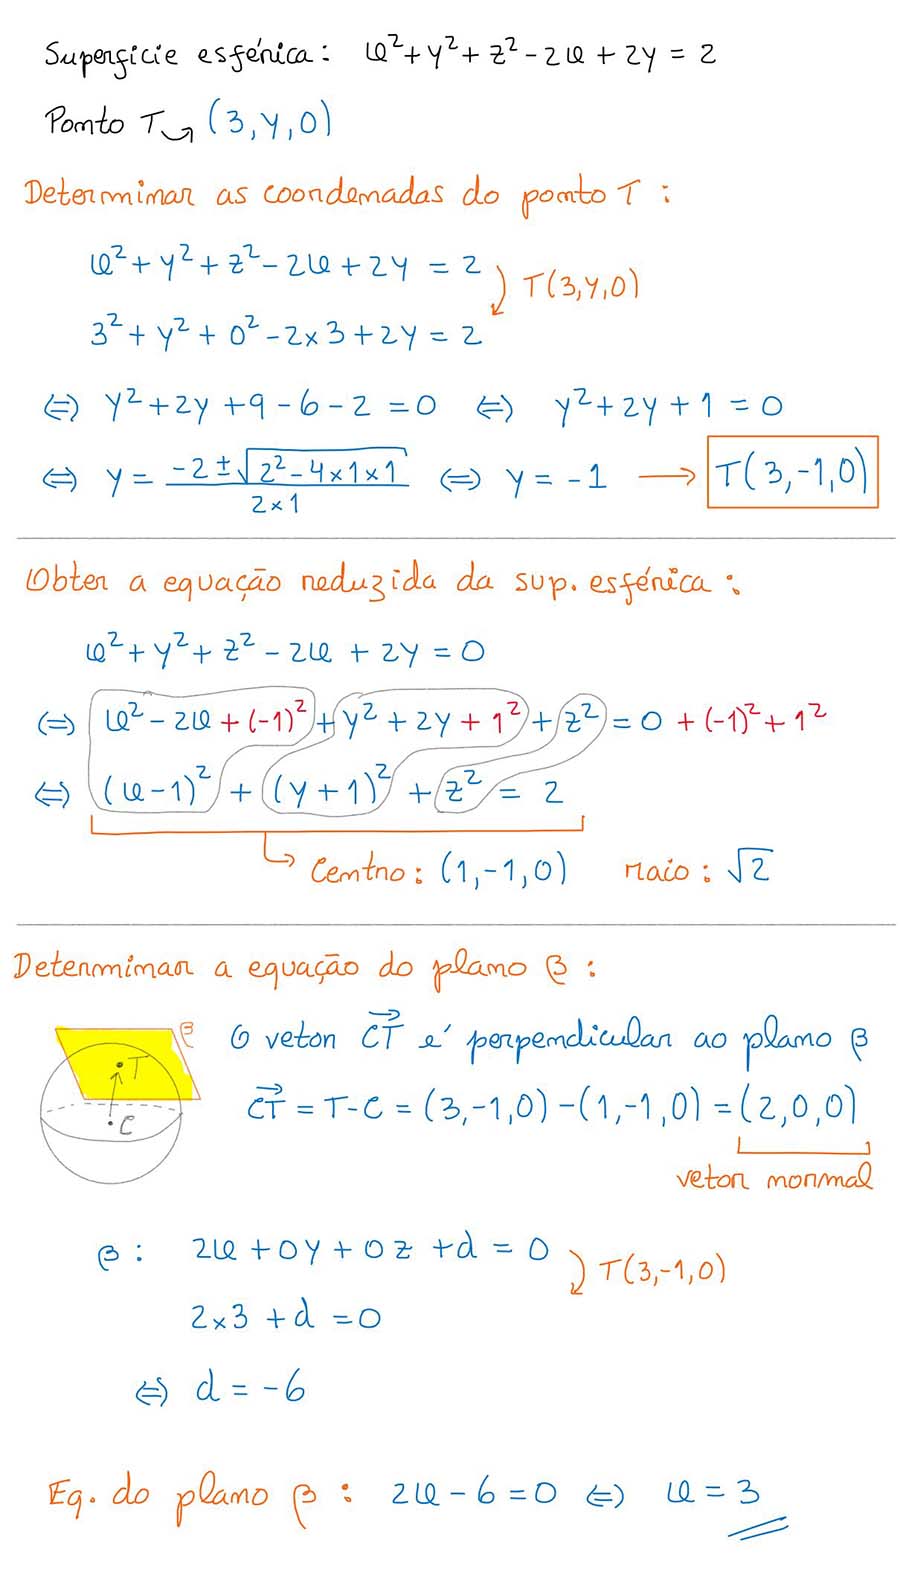 Superfície esférica: x²+y²+z²-2x+2y=2
Ponto T↗(3,y,0)
Determinar as coordenadas do ponto T:
x²+y²+z²-2x+2y=2
T(3,y,0)
3²+y²+0²-2×3+2y=2
⇔ y²+2y+9-6-2=0 ⇔ y²+2y+1=0
⇔ y = (-2±√(2²-4×1×1))/(2×1) ⇔ y=-1 → T(3,-1,0)
Obter a equação reduzida da sup. esférica:
x²+y²+z²-2x+2y=0
⇔ x²-2x+(-1)²+y²+2y+1²+z²=0+(-1)²+1²
⇔ (x-1)²+(y+1)²+z²=2
↳ Centro: (1,-1,0) raio: √2
Determinar a equação do plano β:
β
T
C
O vetor CT⃗ é perpendicular ao plano β
CT⃗=T-C=(3,-1,0)-(1,-1,0)=(2,0,0)
vetor normal
β: 2x+0y+0z+d=0
T(3,-1,0)
2×3+d=0
⇔ d=-6
Eq. do plano β: 2x-6=0 ⇔ x=3